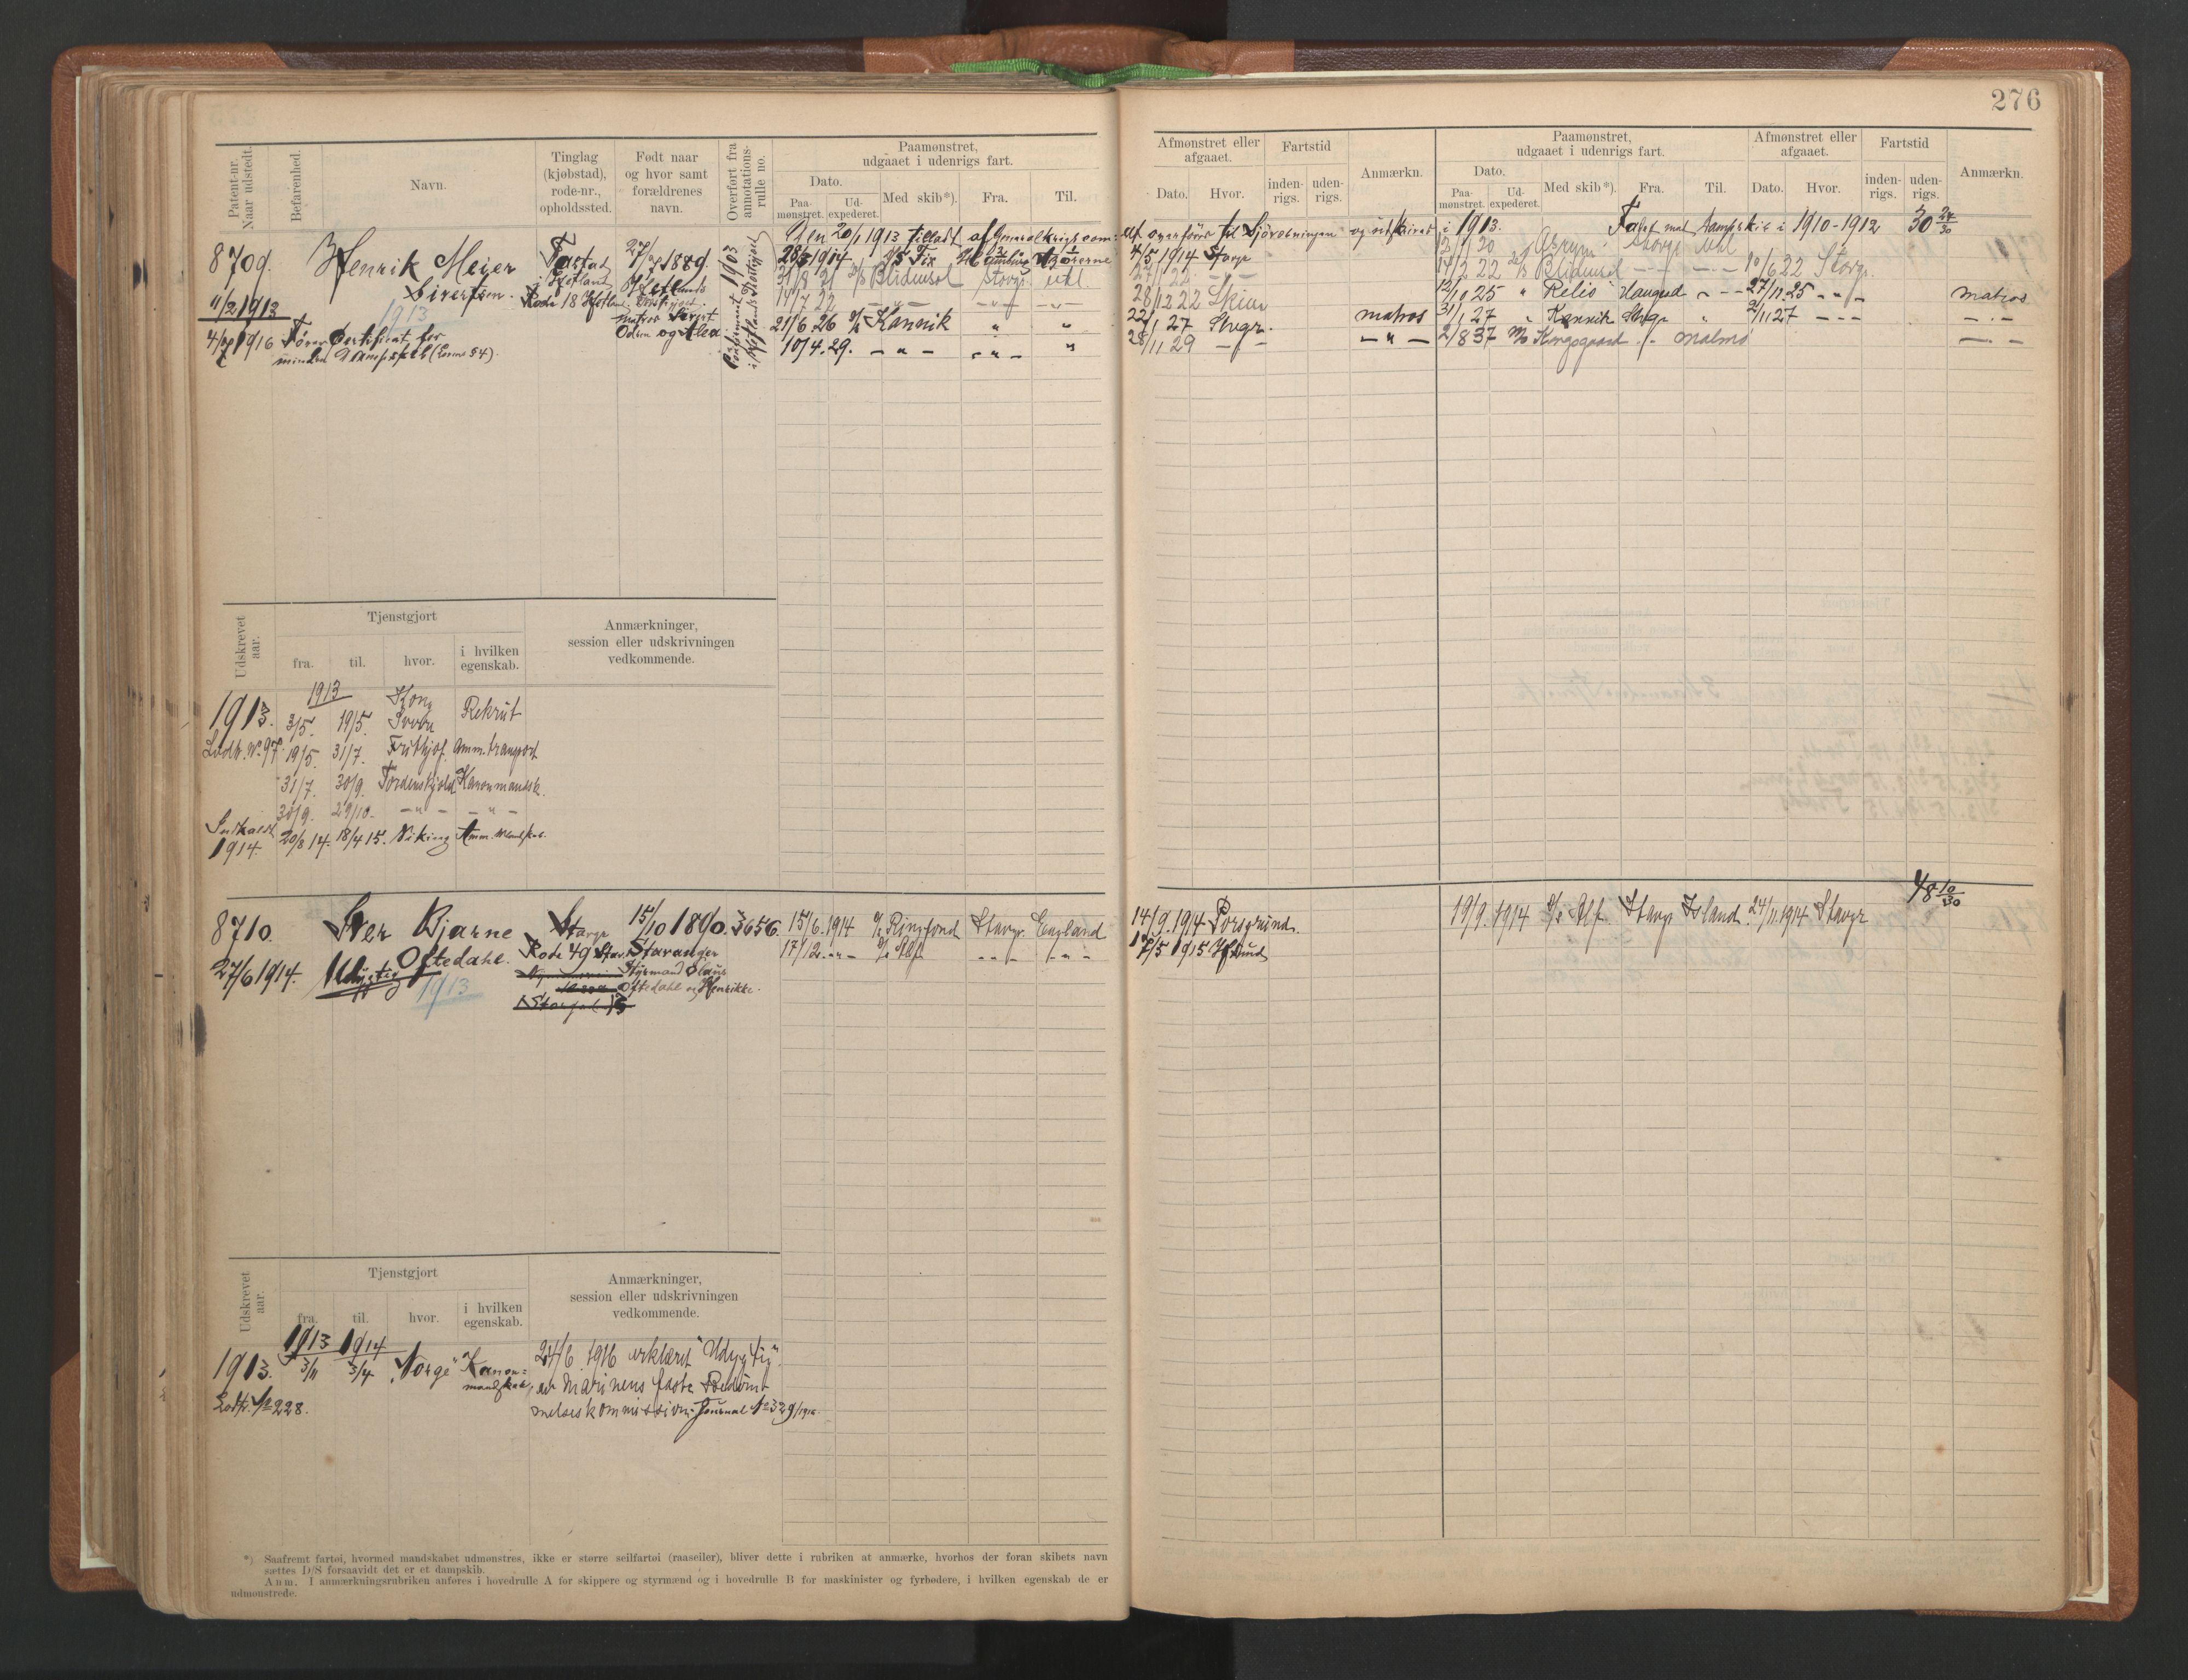 276
Patent-nr. Naar udstedt.
Befarenhed.
Navn.
Tinglag (kjøbstad), rode-nr., opholdssted.
Født naar og hvor samt forældrenes navn.
Overført fra annotations-rulle no.
Paamønstret, udgaaet i udenrigs fart.
Dato.
Paa-mønstret.
Ud-expederet.
Med skib*).
Fra.
Til.
Afmønstret eller afgaaet.
Dato.
Hvor.
Fartstid
inden-rigs.
uden-rigs.
Anmærkn.
Paamønstret, udgaaet i udenrigs fart.
Dato.
Paa-mønstret.
Ud-expederet.
Med skib*).
Fra.
Til.
Afmønstret eller afgaaet.
Dato.
Hvor.
Fartstid
inden-rigs.
uden-rigs.
Anmærkn.
Den 20/1 1913 tilladt af Generalkrigscom- overføres til Sjøværningen og udskrives i 1913. Faret med Dampskib i 1910-1912 30 24/30
8709. Henrik Meier Sivertsen.
11/2 1913
1913
Rode 18 Hetland
27/7 1889.
matros Sivert
Odin og Alea
Konfirmeret 1903
4/7 1916 Fører Certifikat for
mindre Dampskib (Lovens § 4).
1914 Fix
4/5 1914 Stavgr
31/8 21 D/S Blidensol Stavgr utl.
14/7 22
28/12 22 Skien
21/6 26 D/S Kannik " "
22/1 27 Stvgr. matros
10/4. 29. - " - - " - "
28/11 29 - " - - " -
14/2 22 D/S Blidensol - - - - 10/6 22 Stavgr.
12/10 25 " Relis Haugesd - - 27/11 25 - " - matros
31/1 27 " Kannik Stvgr " 2/11 27 - - - - " -
2/8 37 M/S Kongsgaard - " - Malmö - " -
Udskrevet aar.
Tjenstgjort
fra.
til.
hvor.
i hvilken egenskab.
Anmærkninger, session eller udskrivningen vedkommende.
1913
1913. 3/5. 19/5. Rekrut
Lodtr. No 97. 19/5. 31/7. Frithjof. Amm. transport
31/7. 30/9. Tordenskjold Kanonmandsk.
30/9. 29/10. - " - - " -
Indkaldt
1914. 20/8 14. 18/4 15. Viking Amm. Mandskab.
8710. Iver Bjarne Oftedahl.
27/6 1914. Udygtig
1913
Stavgr
Rode 49 Stav.
15/10 1890. 3656.
Stavanger
Styrmand Olaus
Oftedahl og Henrikke.
15/6. 1914 D/S Ringfond Stavgr. England
14/9. 1914 Porsgrund.
17/12. - " - D/S Alf - " - - " -
1/5 1915 Hfsund
19/9. 1914 D/S Alf Stavgr Island 24/11. 1914 Stavgr
48 10/30
Udskrevet aar.
Tjenstgjort
fra.
til.
hvor.
i hvilken egenskab.
Anmærkninger, session eller udskrivningen vedkommende.
1913 1914
1913. 3/11 3/4 "Norge" Kanon-mandskab
Lodtr. No 228.
24/6 1916 erklæret "Udygtig"
av Marinens faste Bedøm-
melseskommission. Journal No 329/1916.
*) Saafremt fartøi, hvormed mandskabet udmønstres, ikke er større seilfartøi (raaseiler), bliver dette i rubriken at anmærke, hvorhos der foran skibets navn
sættes D/S forsaavidt det er et dampskib.
Anm. I anmærkningsrubriken anføres i hovedrulle A for skippere og styrmænd og i hovedrulle B for maskinister og fyrbødere, i hvilken egenskab de er
udmønstrede.